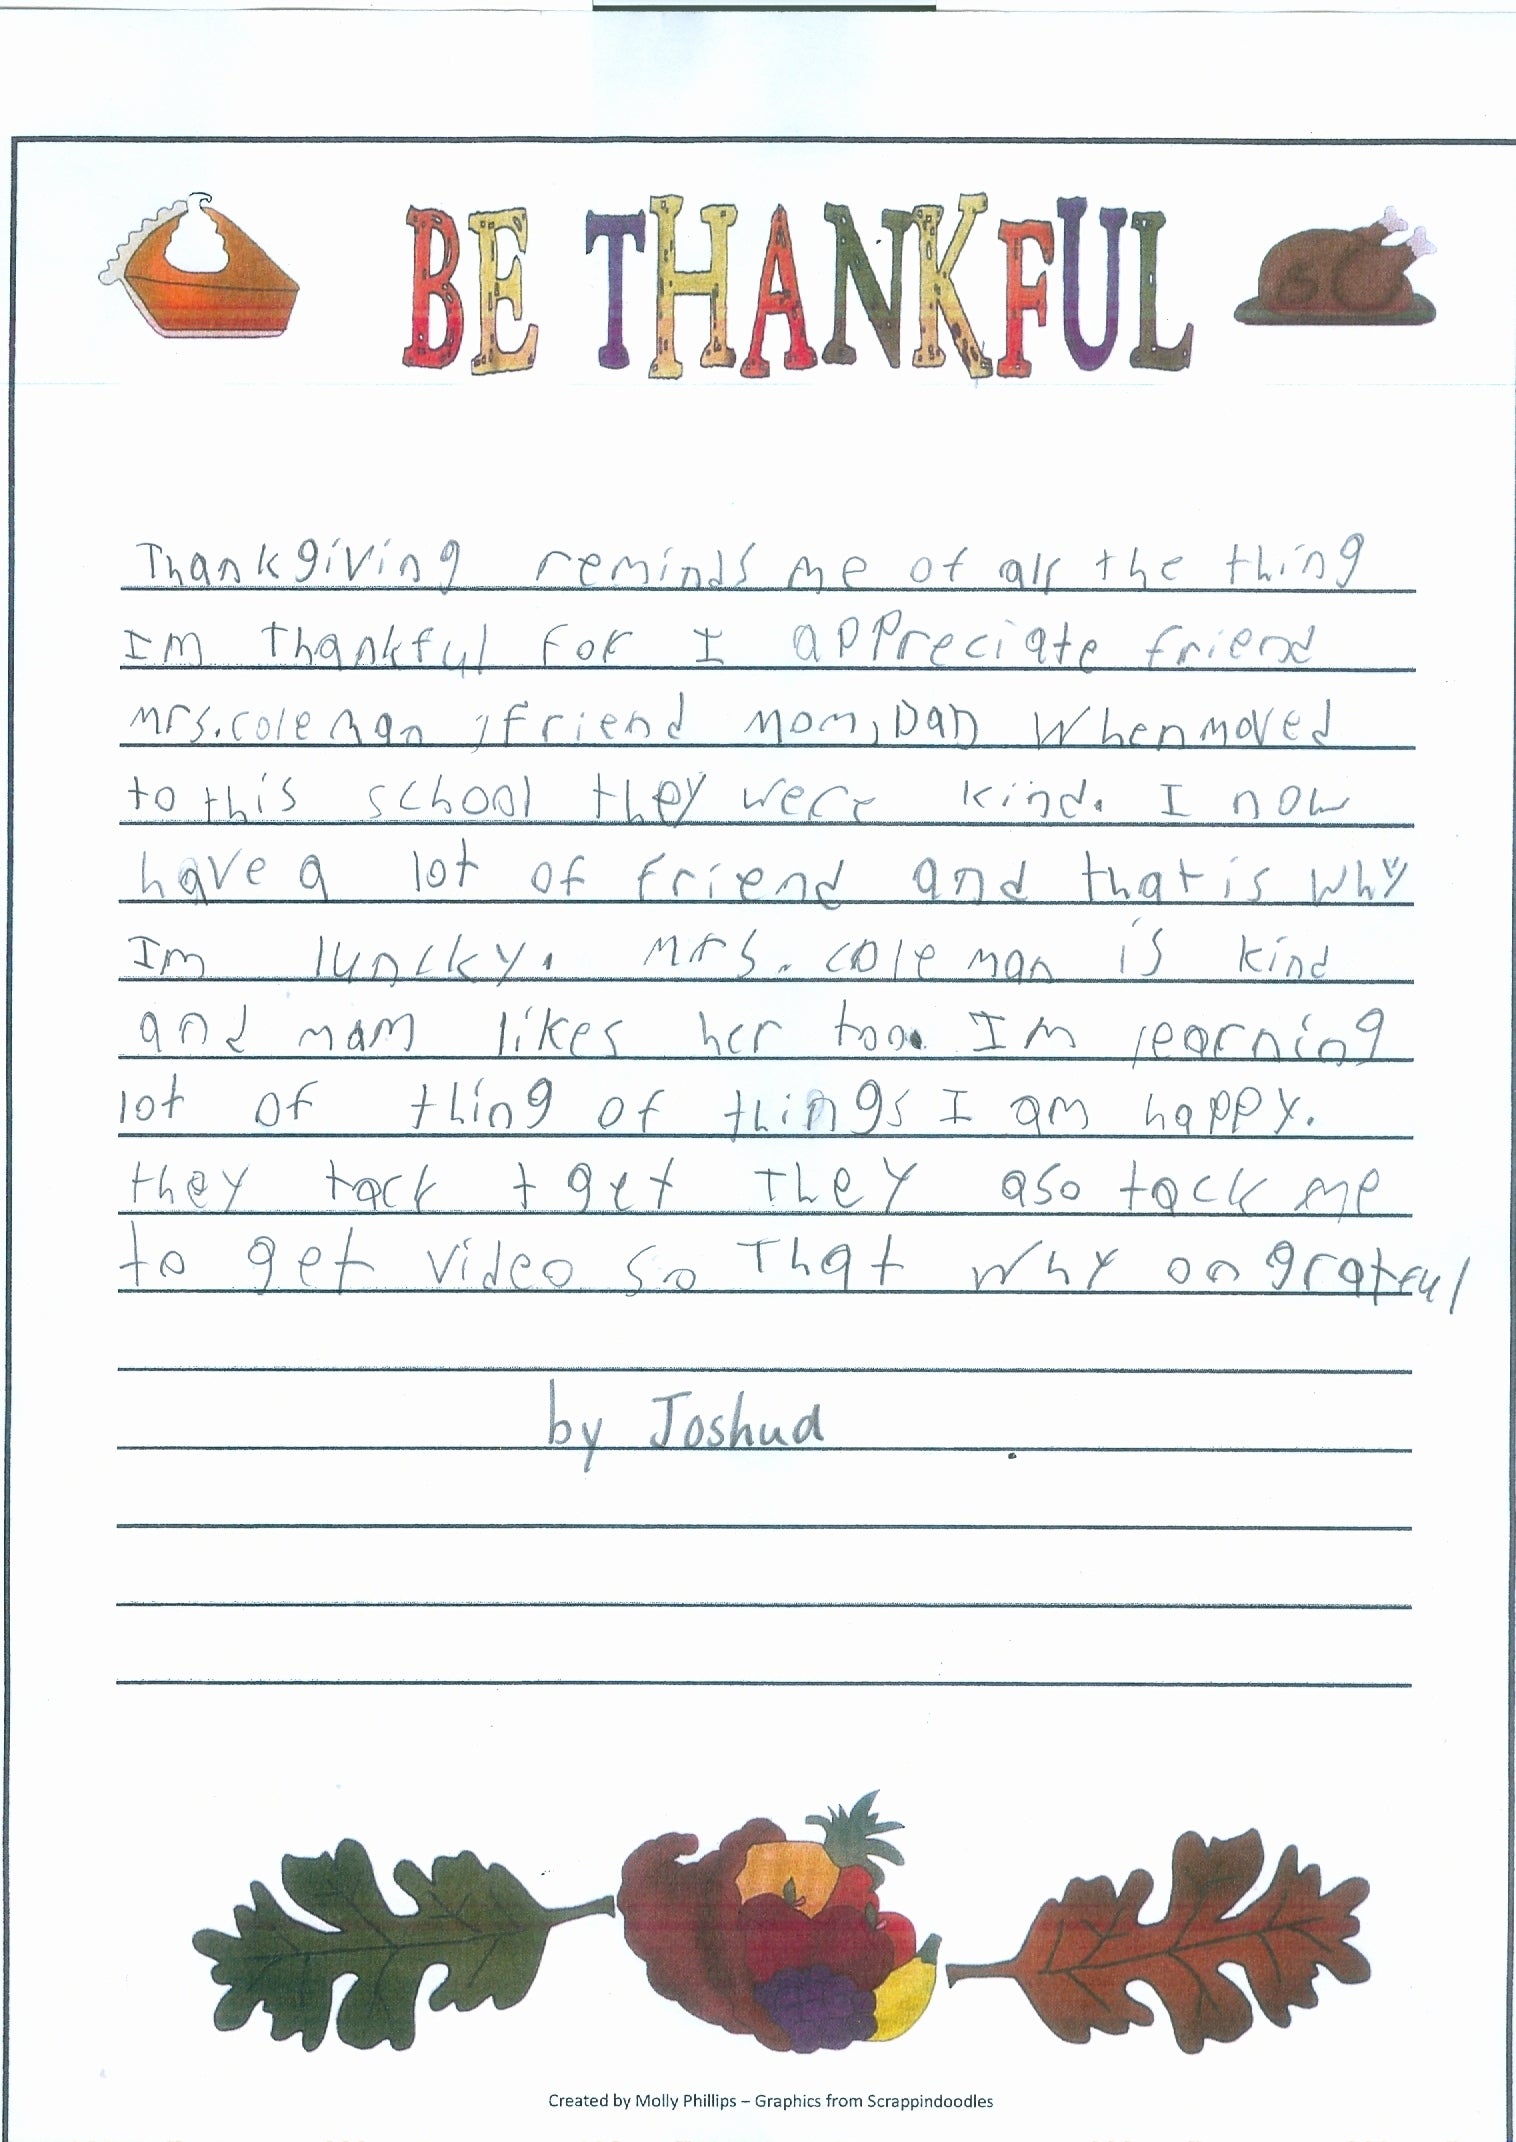 BE THANKFUL
Thankgiving reminds me of all the thing
Im thankful for I appreciate friend
Mrs.coleman ,friend mom, Dad When moved
to this school they were kind. I now
have a lot of friend and that is why
Im luncky. mrs. coleman is kind
and mam likes her too. Im learning
lot of thing of things I am happy.
they tack t get They aso tack me
to get video so That why on gratful
by Joshua
Created by Molly Phillips – Graphics from Scrappindoodles